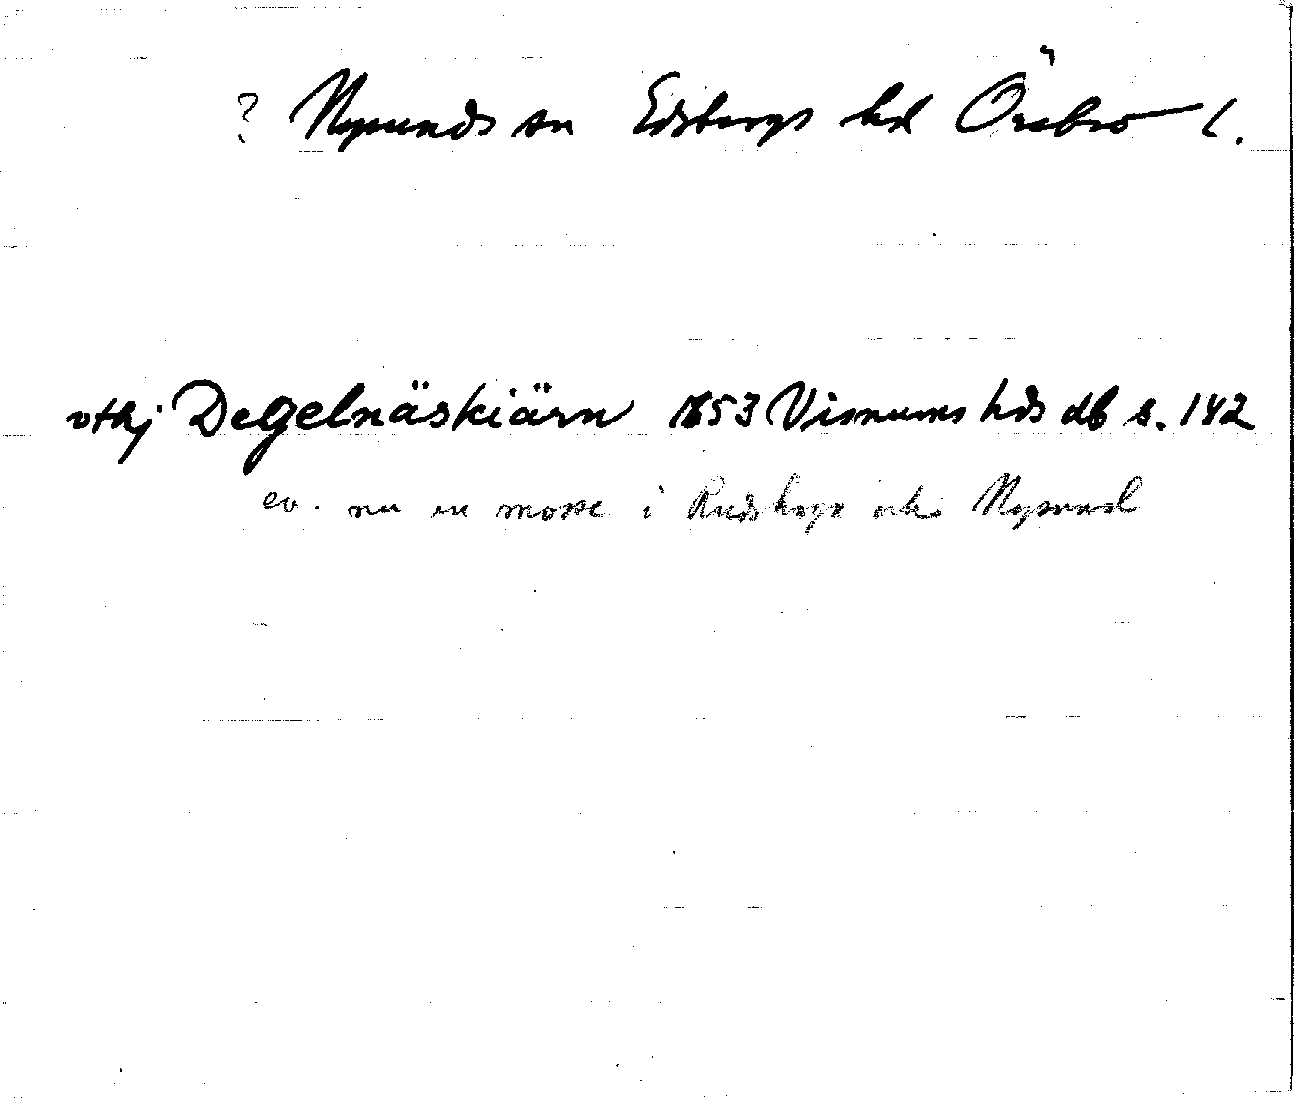 ? Nysunds sn Edsbergs hd Örebro l.
vthj Degelnäskiärn 1653 Visnums hds db s. 142
ev. nu en mosse i Rudskoga och Nysund